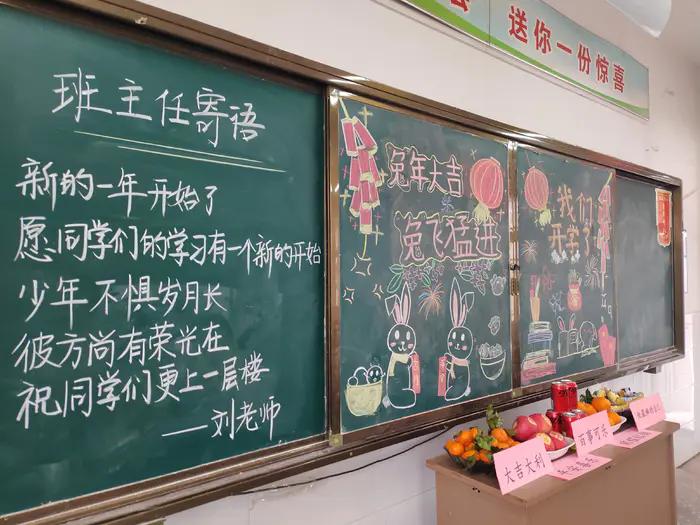 送你一份惊喜
班主任寄语
新的一年开始了
愿同学们的学习有一个新的开始
少年不惧岁月长
彼方尚有荣光在
祝同学们更上一层楼
——刘老师
兔年大吉
兔飞猛进
我们
开学了
大吉大利
百事可乐